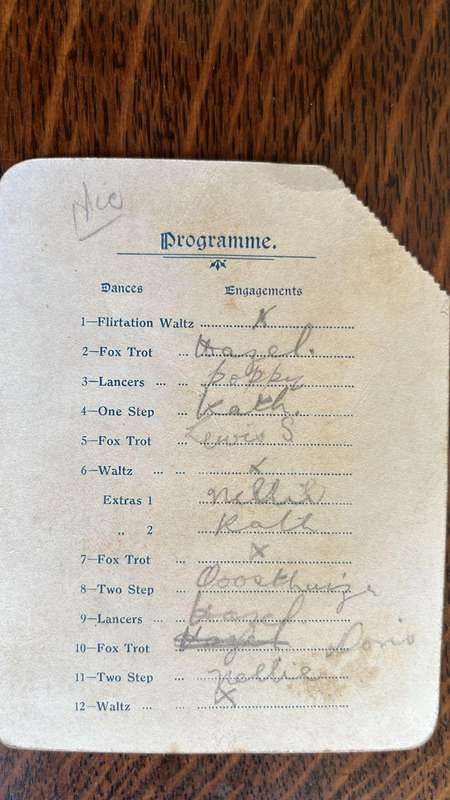 Programme.
Dances Engagements
1—Flirtation Waltz ... x
2—Fox Trot ... Hazel.
3—Lancers ... ... poppy
4—One Step ... Kath.
5—Fox Trot ... Lewis S
6—Waltz ... ... x
Extras 1 Nellie
„ 2 Kath
7—Fox Trot ... x
8—Two Step ... Oosthuize
9—Lancers ... Hazel.
10—Fox Trot ... Hazel Doris
11—Two Step ... Nellie
12—Waltz ... ... x